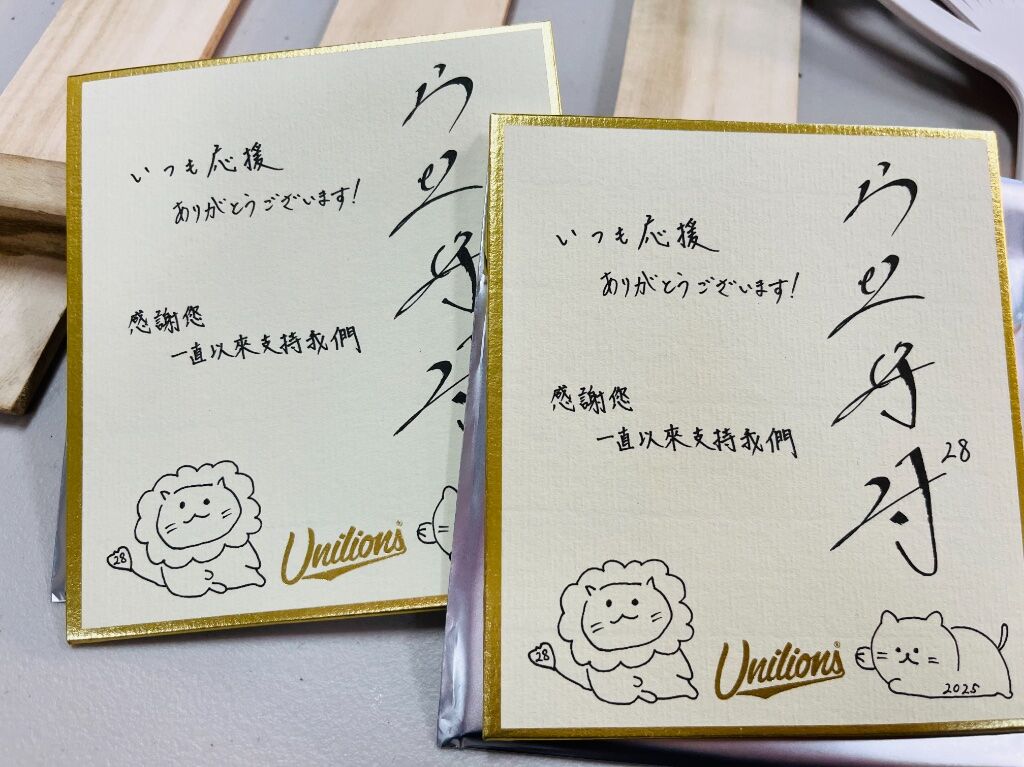 いつも応援
ありがとうございます!
感謝您
一直以來支持我們
28
Unilions
いつも応援
ありがとうございます!
感謝您
一直以來支持我們
28
28
Unilions
2025